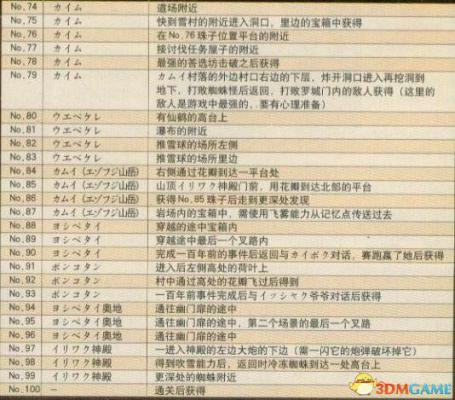 No.74 カイム 道场附近
No.75 カイム 快到雪村的附近进入洞口,里边的宝箱中获得
No.76 カイム 在No.76珠子位置平台的附近
No.77 カイム 接讨伐任务屋子的附近
No.78 カイム 最强的答选坊击破之后获得
No.79 カイム カムイ村落的外边村口右边的下层,炸开洞口进入再挖洞到
地下,打败蜘蛛怪后返回,打败罗城门内的敌人获得(这里的
敌人是游戏中最强的,要有心理准备)
No.80 ウエペケレ 有仙鹤的高台上
No.81 ウエペケレ 瀑布的附近
No.82 ウエペケレ 推雪球的场所左侧
No.83 ウエペケレ 推雪球的场所里边
No.84 カムイ(エゾフジ山岳) 右侧通过花瓣到达一平台处
No.85 カムイ(エゾフジ山岳) 山顶イリワク神殿门前,用花瓣到达北部的平台
No.86 カムイ(エゾフジ山岳) 获得No.85珠子后走到更深处发现
No.87 カムイ(エゾフジ山岳) 岩场内的宝箱中,需使用飞雾能力从记忆点传送过去
No.88 ヨシペタイ 穿越的途中宝箱内
No.89 ヨシペタイ 穿越途中最后一个叉路内
No.90 ヨシペタイ 完成一百年前的事件后返回与カイポク对话,赛跑赢了她后获得
No.91 ポンコタン 进入后左侧高处的荷叶上
No.92 ポンコタン 村中通过高处的花瓣飞过后得到
No.93 ポンコタン 一百年前事件完成后与イッシャク爷爷对话后获得
No.94 ヨシペタイ奥地 通往幽门扉的途中
No.95 ヨシペタイ奥地 通往幽门扉的途中,第二个场景的最后一个叉路
No.96 ヨシペタイ奥地 通往幽门扉的途中
No.97 イリワク神殿 一进入神殿的左边大炮的下边(需一闪它的炮弹破坏掉它)
No.98 イリワク神殿 得到吹雪能力后,返回时冷冻蜘蛛到达一处高台上
No.99 イリワク神殿 更深处的蜘蛛附近
No.100 – 通关后获得
3DMGAME